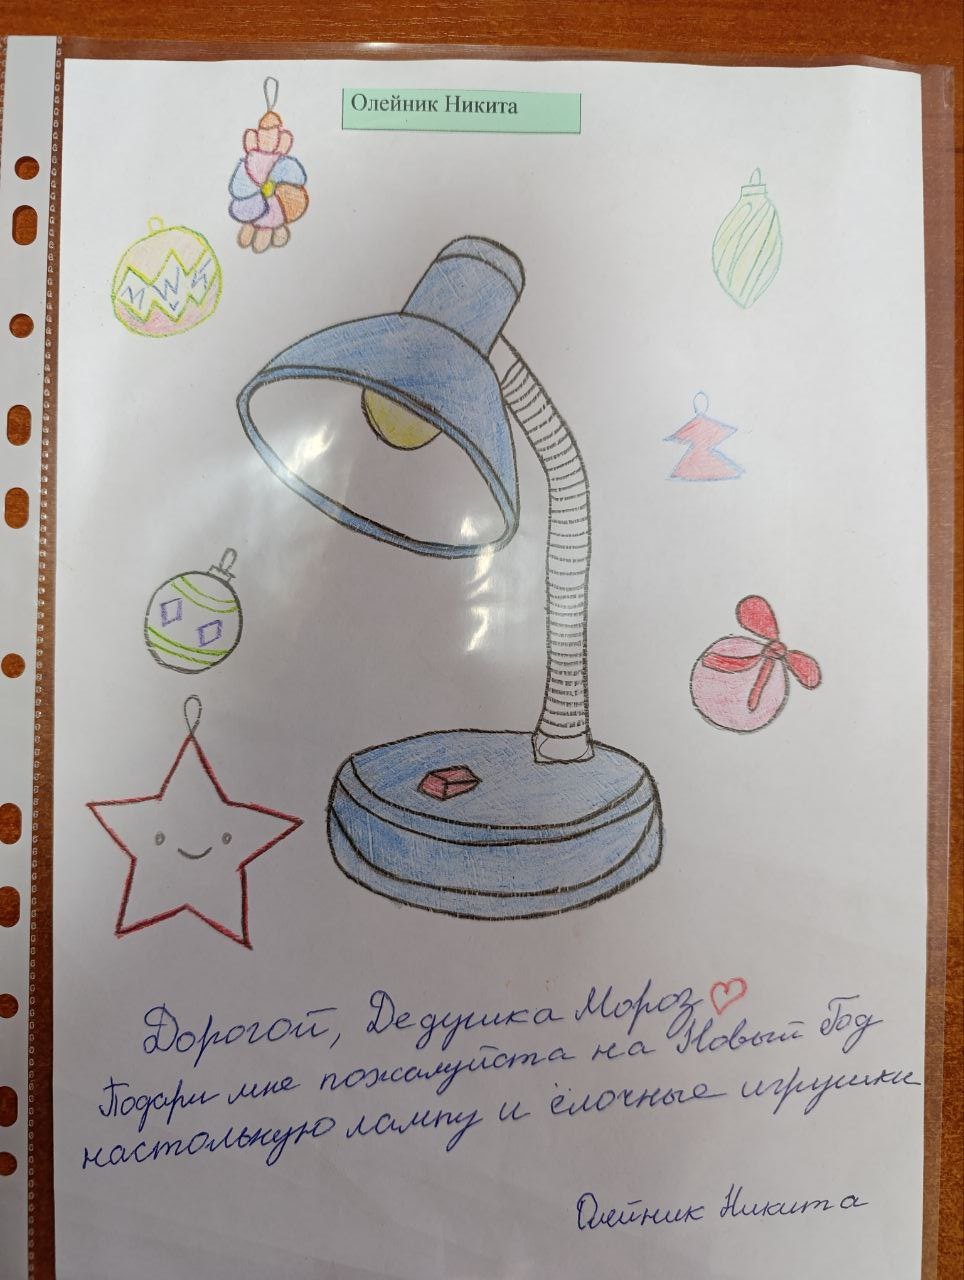 Олейник Никита
Дорогой, Дедушка Мороз
Подари мне пожалуйста на Новый Год
настольную лампу и ёлочные игрушки
Олейник Никита